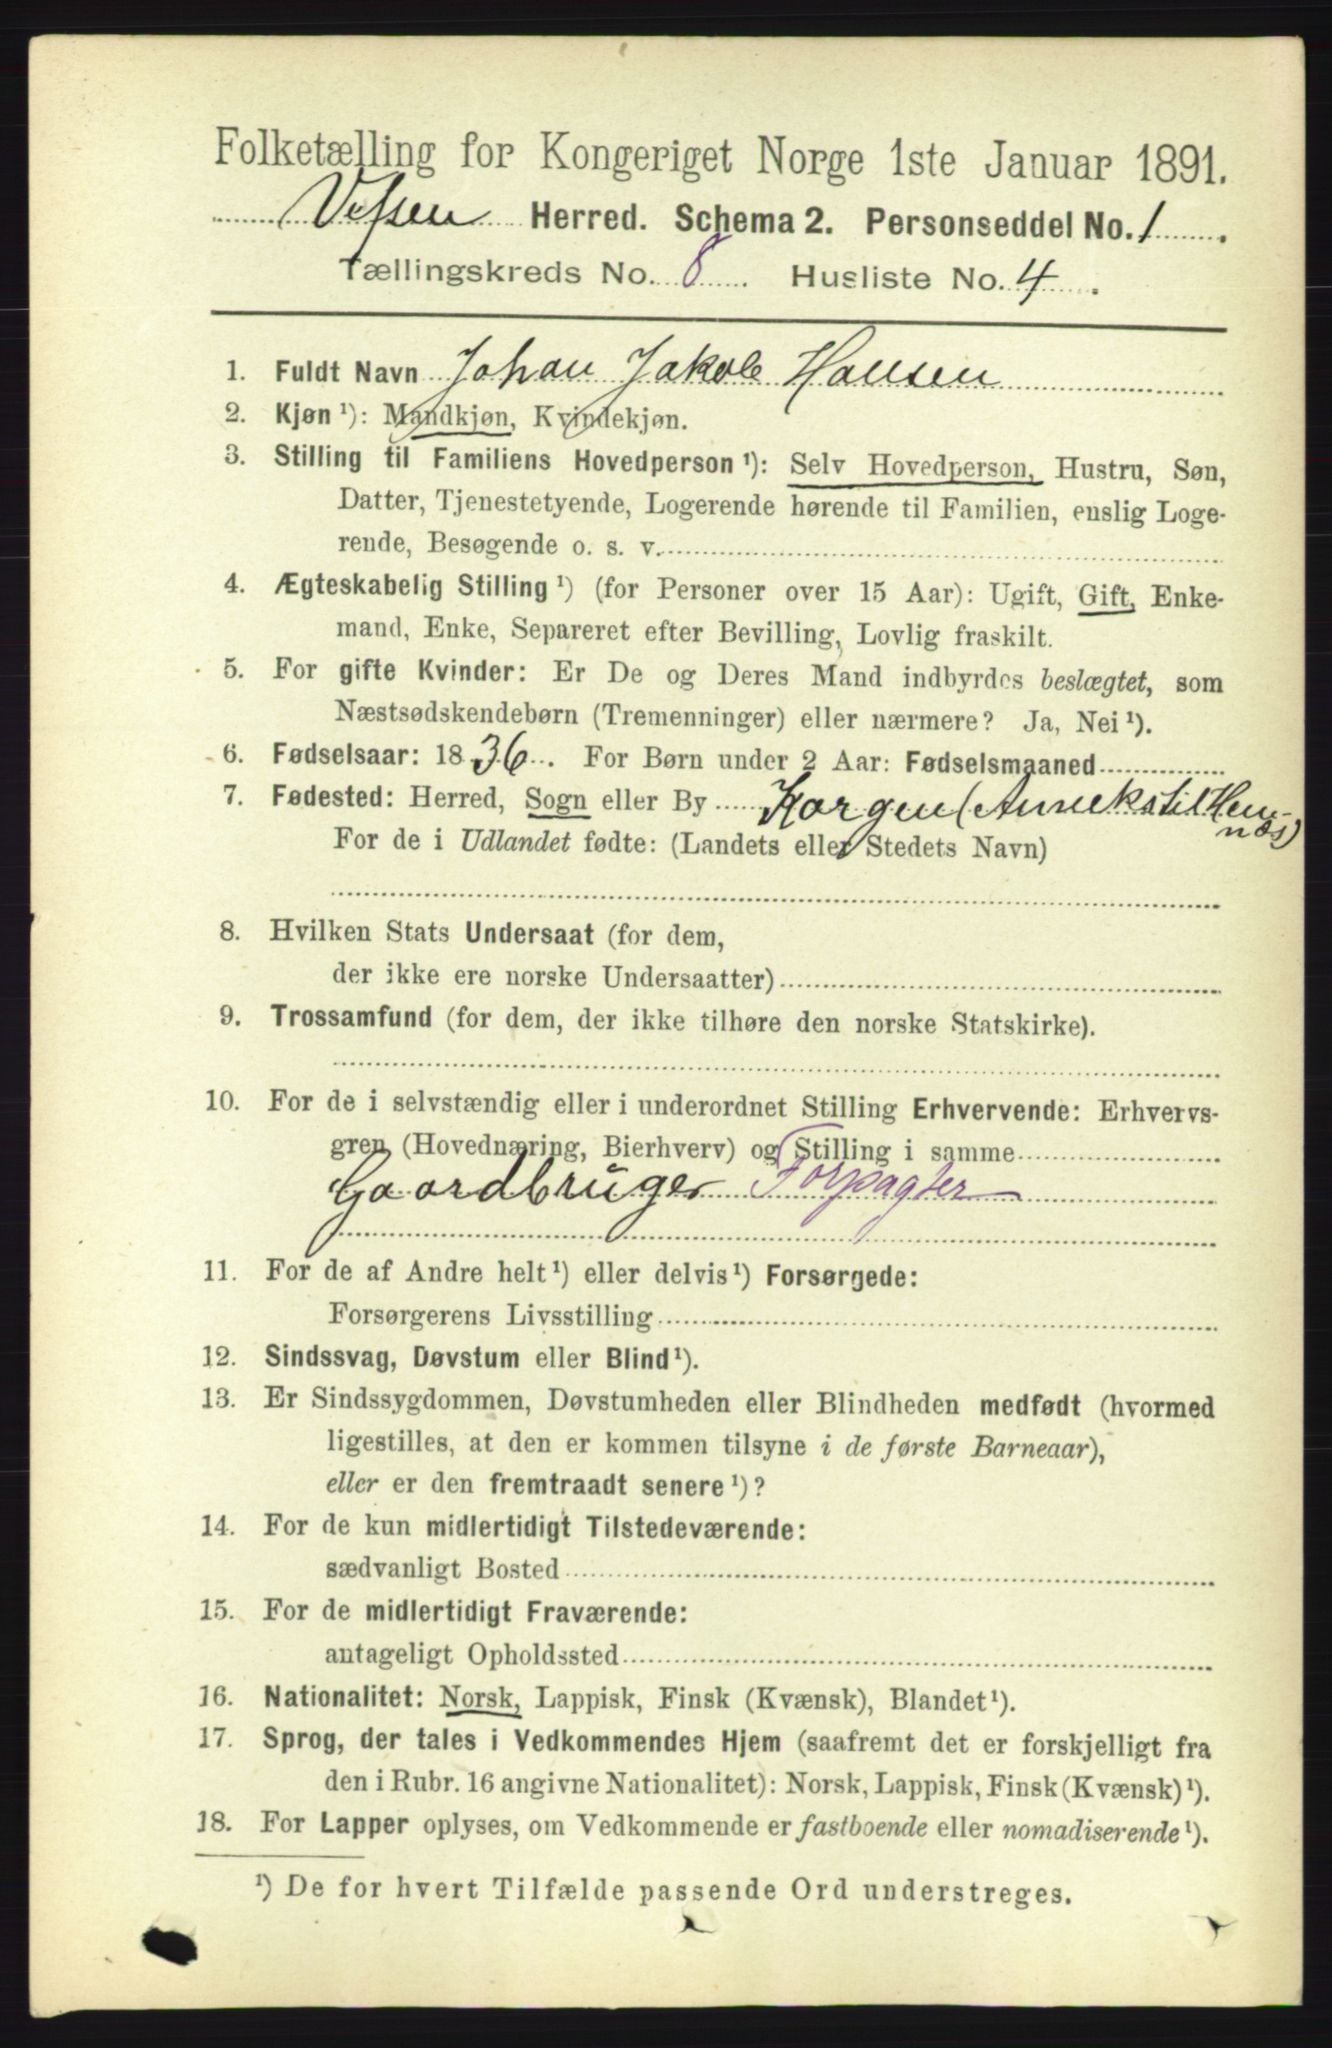 Folketælling for Kongeriget Norge 1ste Januar 1891.
Vefsen Herred. Schema 2. Personseddel No. 1
Tællingskreds No. 8 Husliste No. 4.
1. Fuldt Navn Johan Jakob Hansen
2. Kjøn ¹): Mandkjøn, Kvindekjøn.
3. Stilling til Familiens Hovedperson ¹): Selv Hovedperson, Hustru, Søn,
Datter, Tjenestetyende, Logerende hørende til Familien, enslig Loge-
rende, Besøgende o. s. v.
4. Ægteskabelig Stilling ¹) (for Personer over 15 Aar): Ugift, Gift, Enke-
mand, Enke, Separeret efter Bevilling, Lovlig fraskilt.
5. For gifte Kvinder: Er De og Deres Mand indbyrdes beslægtet, som
Næstsødskendebørn (Tremenninger) eller nærmere? Ja, Nei ¹).
6. Fødselsaar: 1836. For Børn under 2 Aar: Fødselsmaaned
7. Fødested: Herred, Sogn eller By Korgen (Anneks til Hem-
næs)
For de i Udlandet fødte: (Landets eller Stedets Navn)
8. Hvilken Stats Undersaat (for dem,
der ikke ere norske Undersaatter)
9. Trossamfund (for dem, der ikke tilhøre den norske Statskirke).
10. For de i selvstændig eller i underordnet Stilling Erhvervende: Erhvervs-
gren (Hovednæring, Bierhverv) og Stilling i samme
Gaardbruger Forpagter
11. For de af Andre helt ¹) eller delvis ¹) Forsørgede:
Forsørgerens Livsstilling
12. Sindssvag, Døvstum eller Blind ¹).
13. Er Sindssygdommen, Døvstumheden eller Blindheden medfødt (hvormed
ligestilles, at den er kommen tilsyne i de første Barneaar),
eller er den fremtraadt senere ¹)?
14. For de kun midlertidigt Tilstedeværende:
sædvanligt Bosted
15. For de midlertidigt Fraværende:
antageligt Opholdssted
16. Nationalitet: Norsk, Lappisk, Finsk (Kvænsk), Blandet ¹).
17. Sprog, der tales i Vedkommendes Hjem (saafremt det er forskjelligt fra
den i Rubr. 16 angivne Nationalitet): Norsk, Lappisk, Finsk (Kvænsk) ¹).
18. For Lapper oplyses, om Vedkommende er fastboende eller nomadiserende ¹).
¹) De for hvert Tilfælde passende Ord understreges.